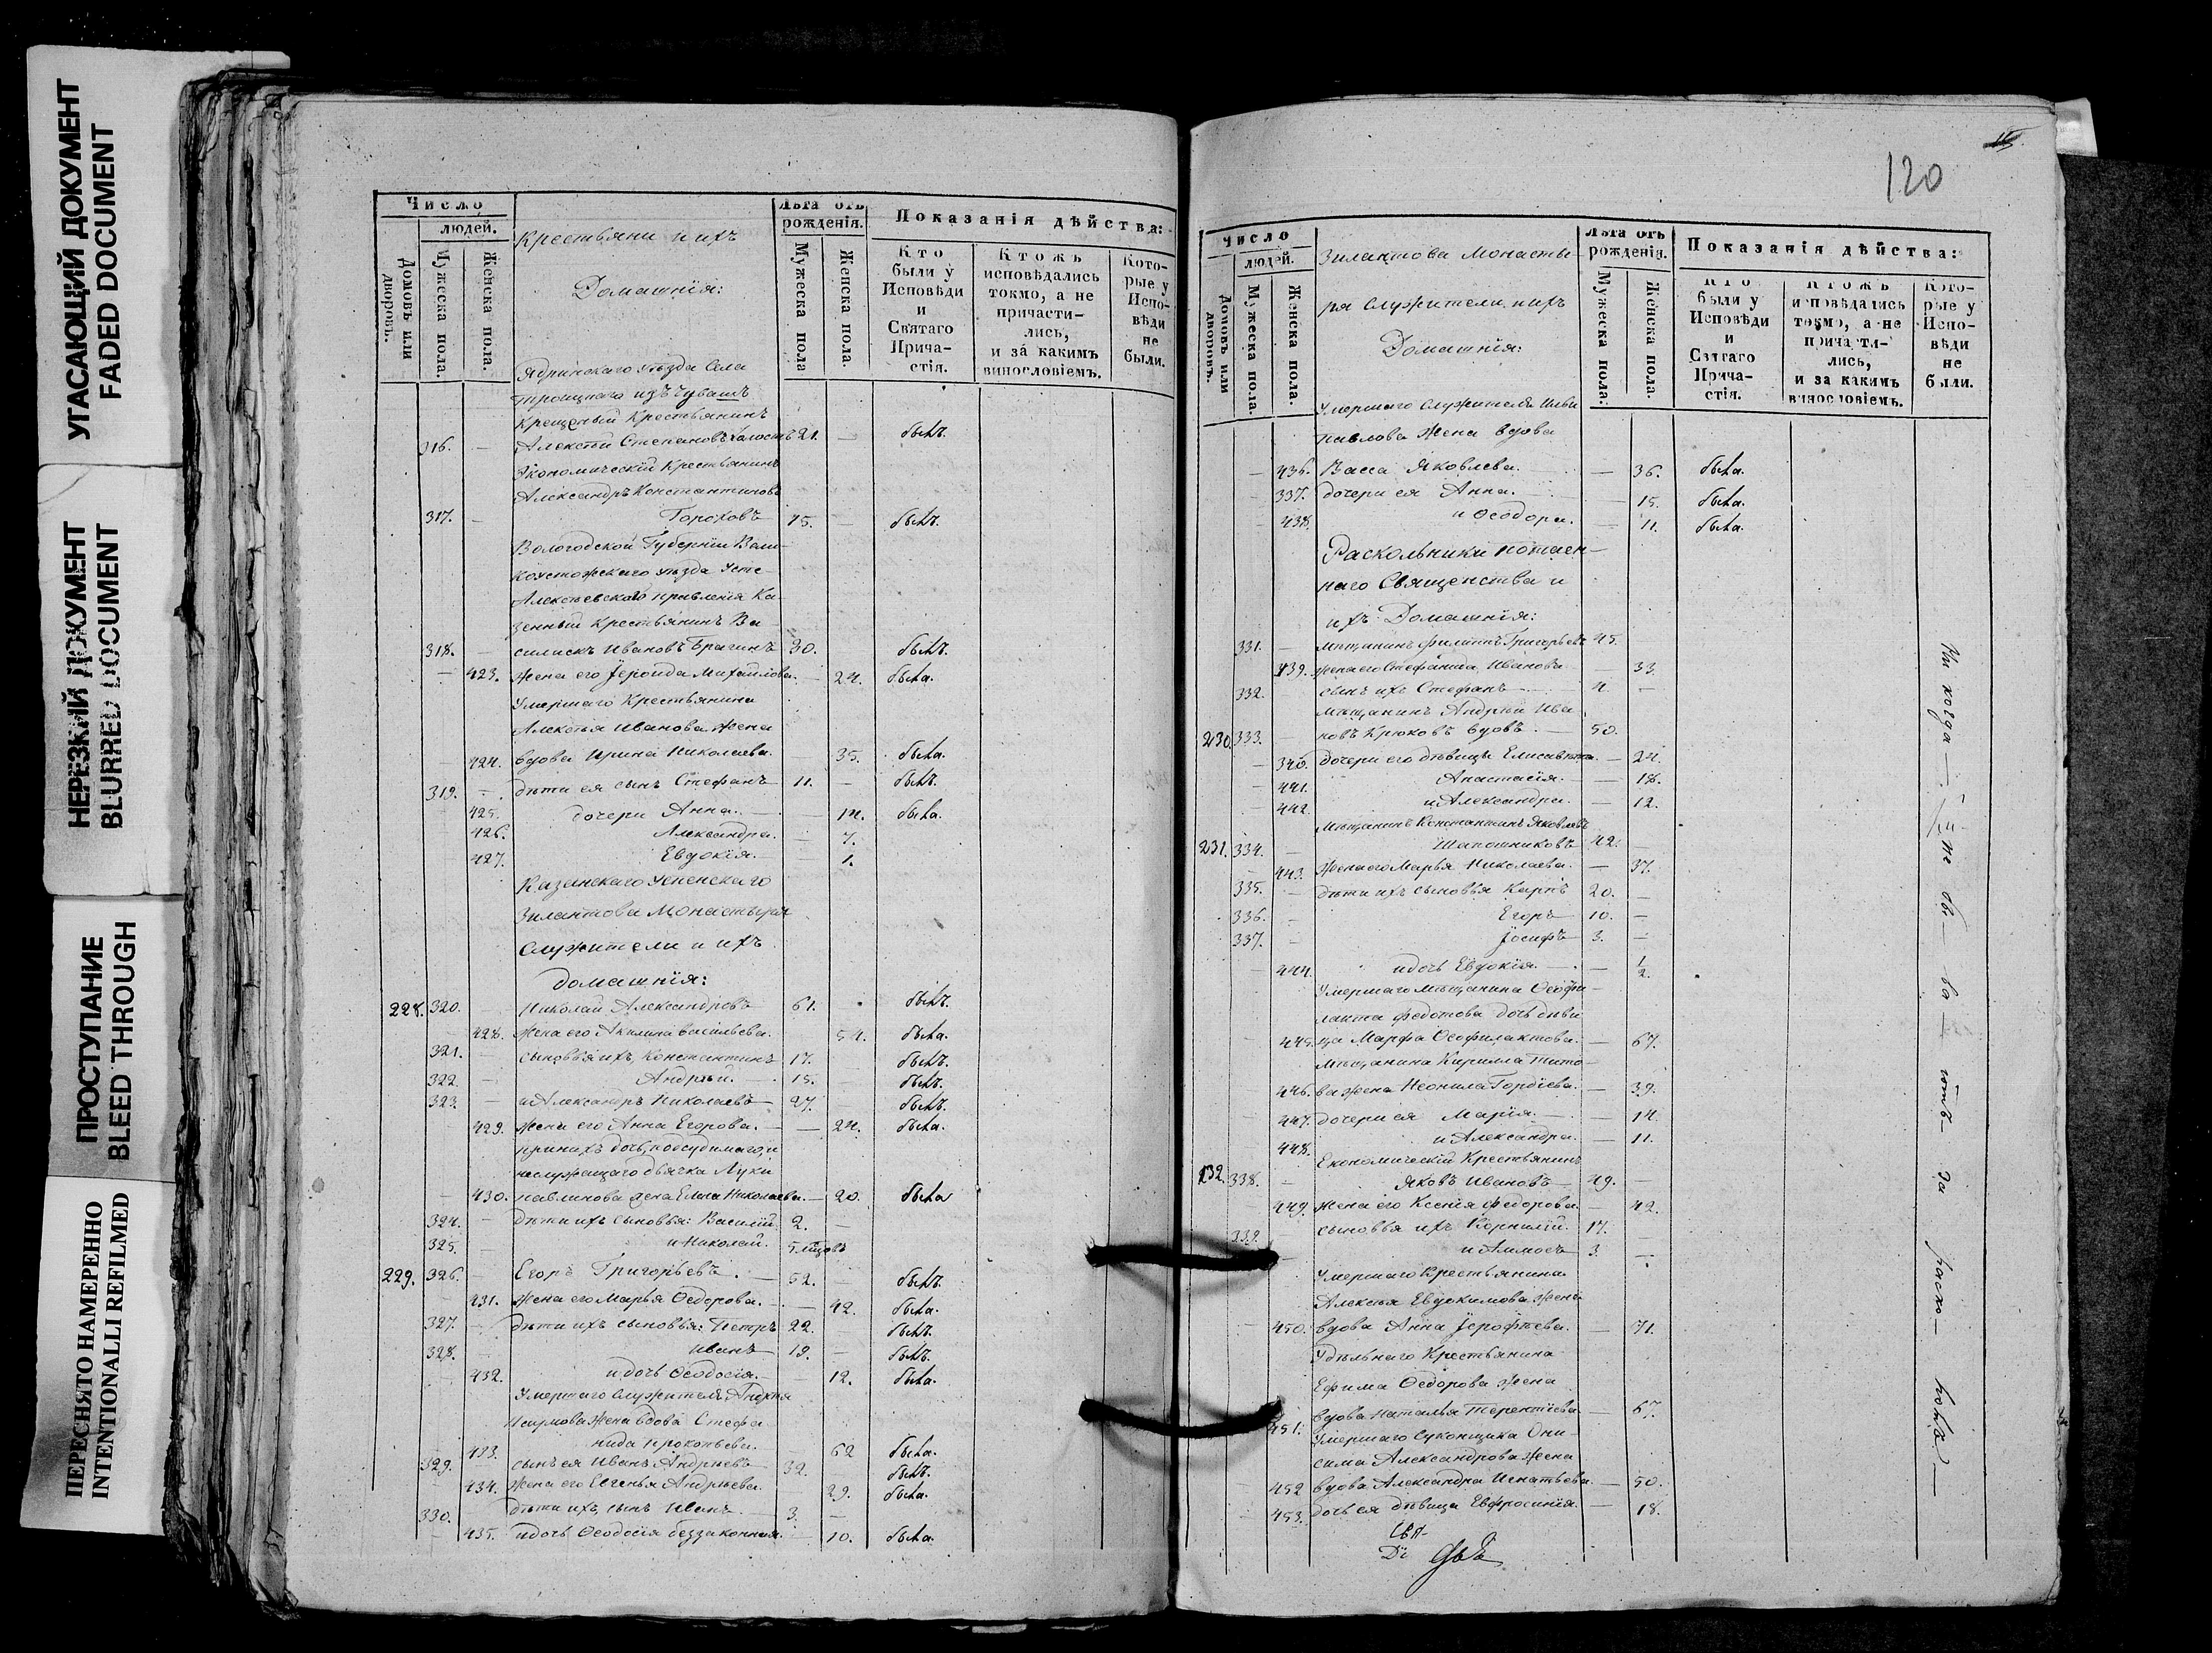 УГАСАЮЩИЙ ДОКУМЕНТ
FADED DOCUMENT
НЕРЕЗКИЙ ДОКУМЕНТ
BLURRED DOCUMENT
ПРОСТУПАНИЕ
BLEED THROUGH
ПЕРЕСНЯТО НАМЕРЕННО
INTENTIONALLI REFILMED
Число
людей.
Домовъ или дворовъ.
Мужеска пола.
Женска пола.
Крестьяни и ихъ
Домашнія:
Лѣта отъ рожденія.
Мужеска пола
Женска пола.
Показанія дѣйства:
Кто были у Исповѣди и Святаго Причастія.
Ктожъ исповѣдались токмо, а не причастились, и за какимъ винословіемъ.
Которые у Исповѣди не были.
Ядринскаго уѣзда Села
Троицкаго изъ Чувашъ
Крещеный Крестьянинъ
316. — Алексѣй Степановъ холостъ 21. — былъ.
Экономическій Крестьянинъ
Александръ Константиновъ
317. — Гороховъ 75. — былъ.
Вологодской Губерніи Вели-
коустюжскаго уѣзда Усть
Алексѣевскаго правленія Ка-
зенный крестьянинъ Ва-
318. — силискъ Ивановъ Брагинъ 30. былъ.
— 423. жена его Михайлова. — 24. была.
Умершаго Крестьянина
Алексѣя Иванова жена
— 424. вдова Ирина Николаева. 35. была.
319. — дѣти ея сынъ Стефанъ 11. — былъ.
425. дочери Анна. — 14. была.
426. Александра. — 7.
427. Евдокія. — 1.
Казанскаго Успенскаго
Зилантова Монастыря
служители и ихъ
домашнія:
228. 320. Николай Александровъ 61. былъ.
428. жена его Акилина Васильева. 54. была.
321. — сыновья ихъ, Константинъ 17. былъ.
322. — Андрей. — 15. былъ.
323. — и Александръ Николаевъ 27. былъ.
429. жена его Анна Егорова. — 24. была.
при нихъ дочь, подсудимаго, и
неслужащаго дьячка Луки
430. павлинова жена Елена Николаева. — 20. была
324. — дѣти ихъ сыновья: Василій 2. —
325. — и Николай. 5 мѣсцовъ
229. 326. — Егоръ Григорьевъ. — 52. былъ.
431. жена его Марья Ѳедорова. — 42. была.
327. — дѣти ихъ сыновья: Петръ 22. былъ.
328. — Иванъ 19. — былъ.
432. и дочь Ѳеодосія. — 12. была.
Умершаго служителя Андрея
Наумова жена вдова Стефа
433. нида Прокопьева. 62 была.
329. сынъ ея Иванъ Андреевъ 32. былъ.
434. жена его Евгенья Андреева. 29. была.
330. дѣти ихъ, сынъ Иванъ — 3. —
435. и дочь Ѳеодосія беззаконная. — 10. была.
120
Число
людей.
Домовъ или дворовъ.
Мужеска пола.
Женска пола.
Зилантова Монасты-
ря служители и ихъ
Домашнія:
Лѣта отъ рожденія.
Мужеска пола:
Женска пола.
Показанія дѣйства:
Кто были у Исповѣди и Святаго Причастія.
Ктожъ исповѣдались токмо, а не причастились, и за какимъ винословіемъ.
Которые у Исповѣди не были.
Умершаго служителя
павлова жена вдова
— 436. Васса Яковлева. — 36. была.
337. дочери ея Анна. 15. была.
438. и Ѳеодора. — 11. была.
Раскольники потаен-
наго Священства и
ихъ Домашнія:
331. — мѣщанинъ Филиппъ Григорьевъ 45.
439. жена его Стефанида Иванова — 33.
332. сынъ ихъ Стефанъ — 4. —
мѣщанинъ Андрей Ива
230. 333. — новъ Крюковъ вдовъ. — 50.
— 340. дочери его дѣвицы Елисавета. — 24.
441. Анастасія. — 18.
442. и Александра. — 12.
мѣщанинъ Константинъ Яковлевъ
231. 334. — Шапошниковъ 42. —
443. жена его Марья Николаева. — 37.
335. — дѣти ихъ сыновья Карпъ 20. —
336. — Егоръ 10. —
337. — Іосифъ 3. —
444. и дочь Евдокія. — ½.
Умершаго мѣщанина Ѳеофи-
лакта Федотова дочь дѣви
445. ца Марфа Ѳеофилактова. — 67.
мѣщанина Кирилла Тито-
446. ва жена Неонила Гордіева. — 39.
447. дочери ея Марія. — 14.
448. и Александра. — 11.
Економическій Крестьянинъ
232. 338. — Яковъ Ивановъ — 49. —
449. жена его Ксенія Федорова. — 42.
339. сыновья ихъ Корнилій. 17. —
и Аммосъ 3. —
Умершаго Крестьянина
Алексѣя Евдокимова жена
450. вдова Анна Іерофѣева. — 71.
Удѣльнаго Крестьянина
Ефима Ѳедорова жена
451. вдова Наталья Терентіева. — 67.
Умершаго суконщика Они-
сима Александрова жена
452 вдова Александра Игнатьева. — 50.
453. дочь ея дѣвица Евфросинія. — 18.